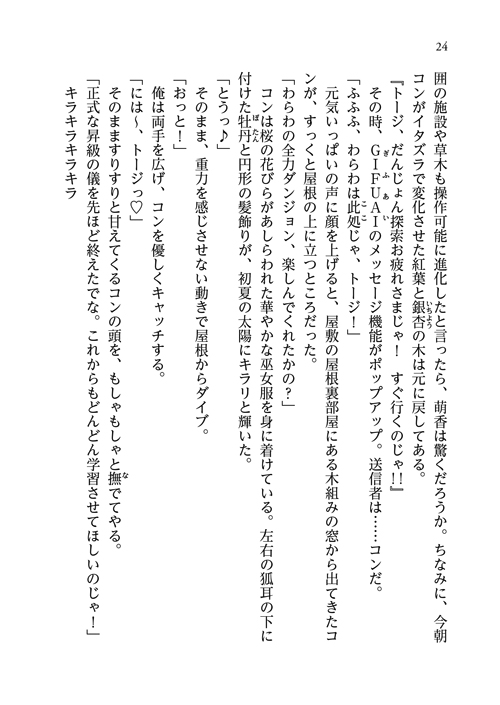 24
囲の施設や草木も操作可能に進化したと言ったら、萌香は驚くだろうか。ちなみに、今朝
コンがイタズラで変化させた紅葉と銀杏の木は元に戻してある。
『トージ、だんじょん探索お疲れさまじゃ！　すぐ行くのじゃ!!』
その時、GIFUAIのメッセージ機能がポップアップ。送信者は……コンだ。
「ふふふ、わらわは此処じゃ、トージ！」
元気いっぱいの声に顔を上げると、屋敷の屋根裏部屋にある木組みの窓から出てきたコ
ンが、すっくと屋根の上に立つところだった。
「わらわの全力ダンジョン、楽しんでくれたかの？」
コンは桜の花びらがあしらわれた華やかな巫女服を身に着けている。左右の狐耳の下に
付けた牡丹と円形の髪飾りが、初夏の太陽にキラリと輝いた。
「とうっ♪」
そのまま、重力を感じさせない動きで屋根からダイブ。
「おっと！」
俺は両手を広げ、コンを優しくキャッチする。
「には〜、トージっ♡」
そのまますりすりと甘えてくるコンの頭を、もしゃもしゃと撫でてやる。
「正式な昇級の儀を先ほど終えたでな。これからもどんどん学習させてほしいのじゃ！」
キラキラキラキラ